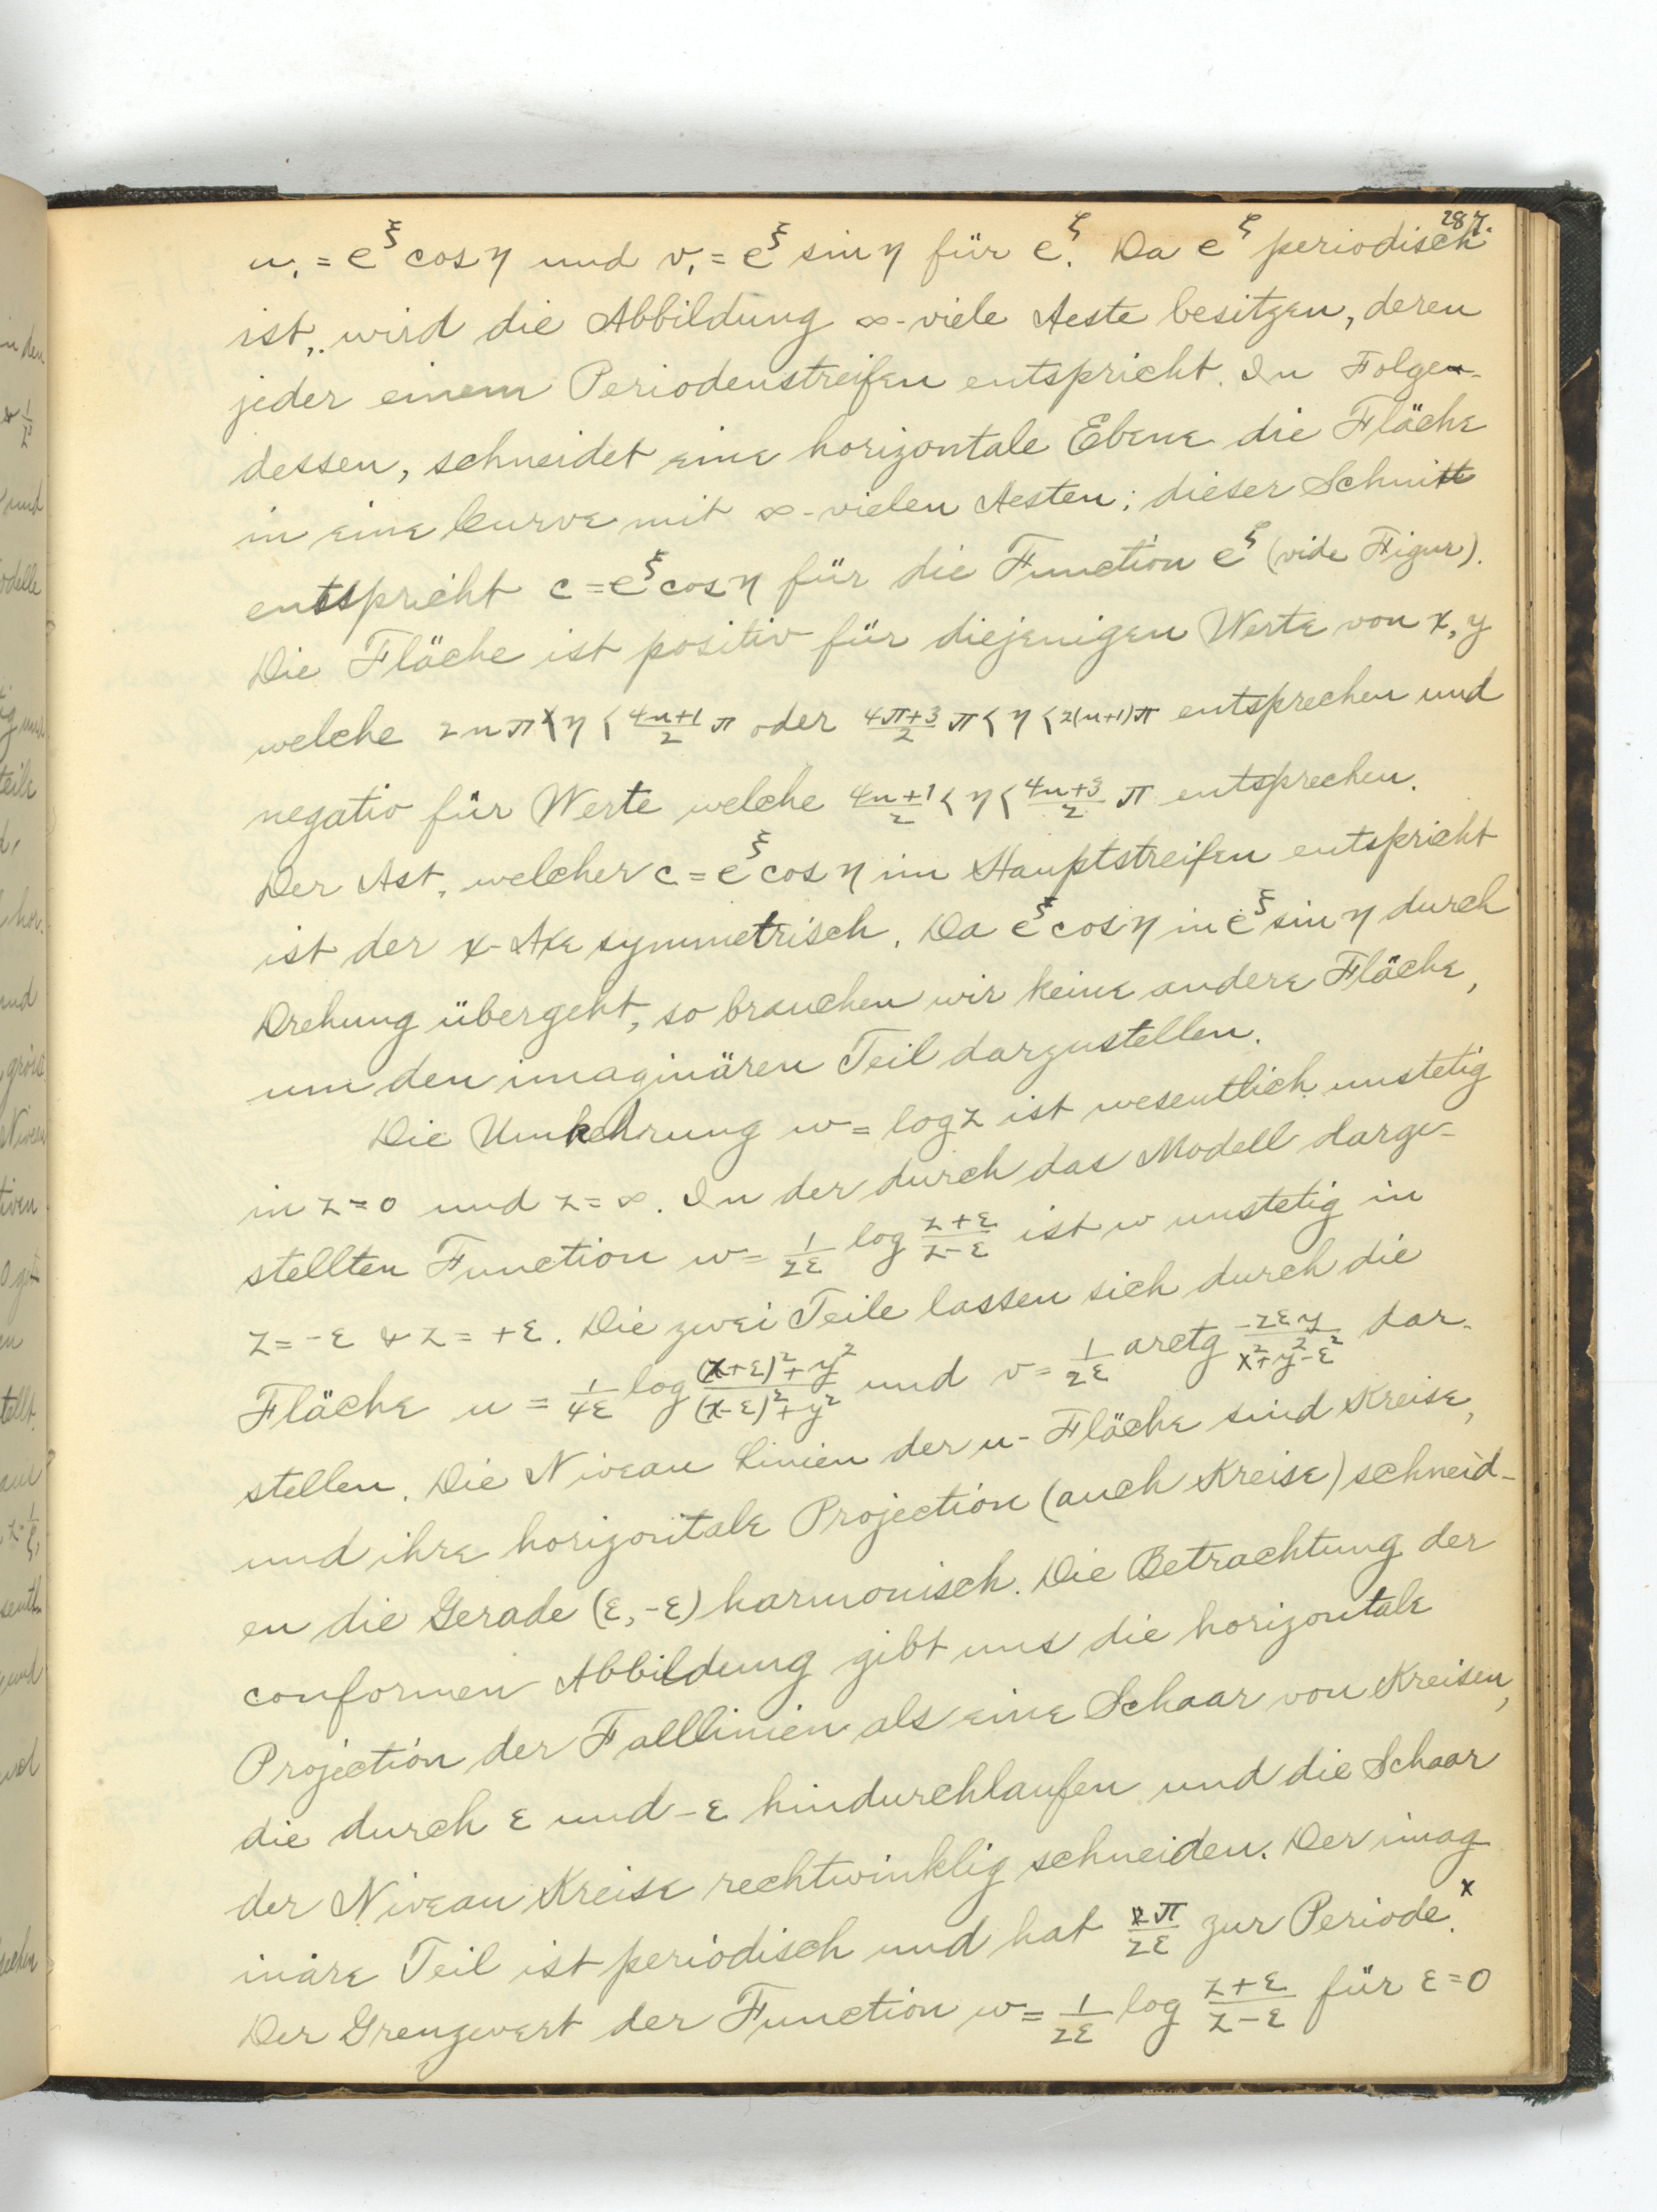 287.
u₁ = e^ξ cos η und v₁ = e^ξ sin η für e^ζ. Da e^ζ periodisch
ist, wird die Abbildung ∞-viele Aeste besitzen, deren
jeder einem Periodenstreifen entspricht. In Folge-
dessen, schneidet eine horizontale Ebene die Fläche
in eine Curve mit ∞-vielen Aesten; dieser Schnitt
entspricht c = e^ξ cos η für die Function e^ζ (vide Figur).
Die Fläche ist positiv für diejenigen Werte von x, y
welche 2nπ < η < (4n+1)/2 π oder (4π+3)/2 π < η < 2(n+1)π entsprechen und
negativ für Werte welche (4n+1)/2 < η < (4n+3)/2 π entsprechen.
Der Ast, welcher c = e^ξ cos η im Hauptstreifen entspricht
ist der x-Axe symmetrisch. Da e^ξ cos η in e^ξ sin η durch
Drehung übergeht, so brauchen wir keine andere Fläche,
um den imaginären Teil darzustellen.
Die Umkehrung w = log z ist wesentlich unstetig
in z = 0 und z = ∞. In der durch das Modell darge-
stellten Function w = 1/2ε log (z+ε)/(z-ε) ist w unstetig in
z = -ε & z = +ε. Die zwei Teile lassen sich durch die
Fläche u = 1/4ε log ((x+ε)²+y²)/((x-ε)²+y²) und v = 1/2ε arctg (-2εy)/(x²+y²-ε²) dar-
stellen. Die Niveau Linien der u-Fläche sind Kreise,
und ihre horizontale Projection (auch Kreise) schneid-
en die Gerade (ε, -ε) harmonisch. Die Betrachtung der
conformen Abbildung gibt uns die horizontale
Projection der Falllinien als eine Schaar von Kreisen,
die durch ε und -ε hindurchlaufen und die Schaar
der Niveau Kreise rechtwinklig schneiden. Der imag
inäre Teil ist periodisch und hat 2π/2ε zur Periode.ˣ
Der Grenzwert der Function w = 1/2ε log (z+ε)/(z-ε) für ε = 0